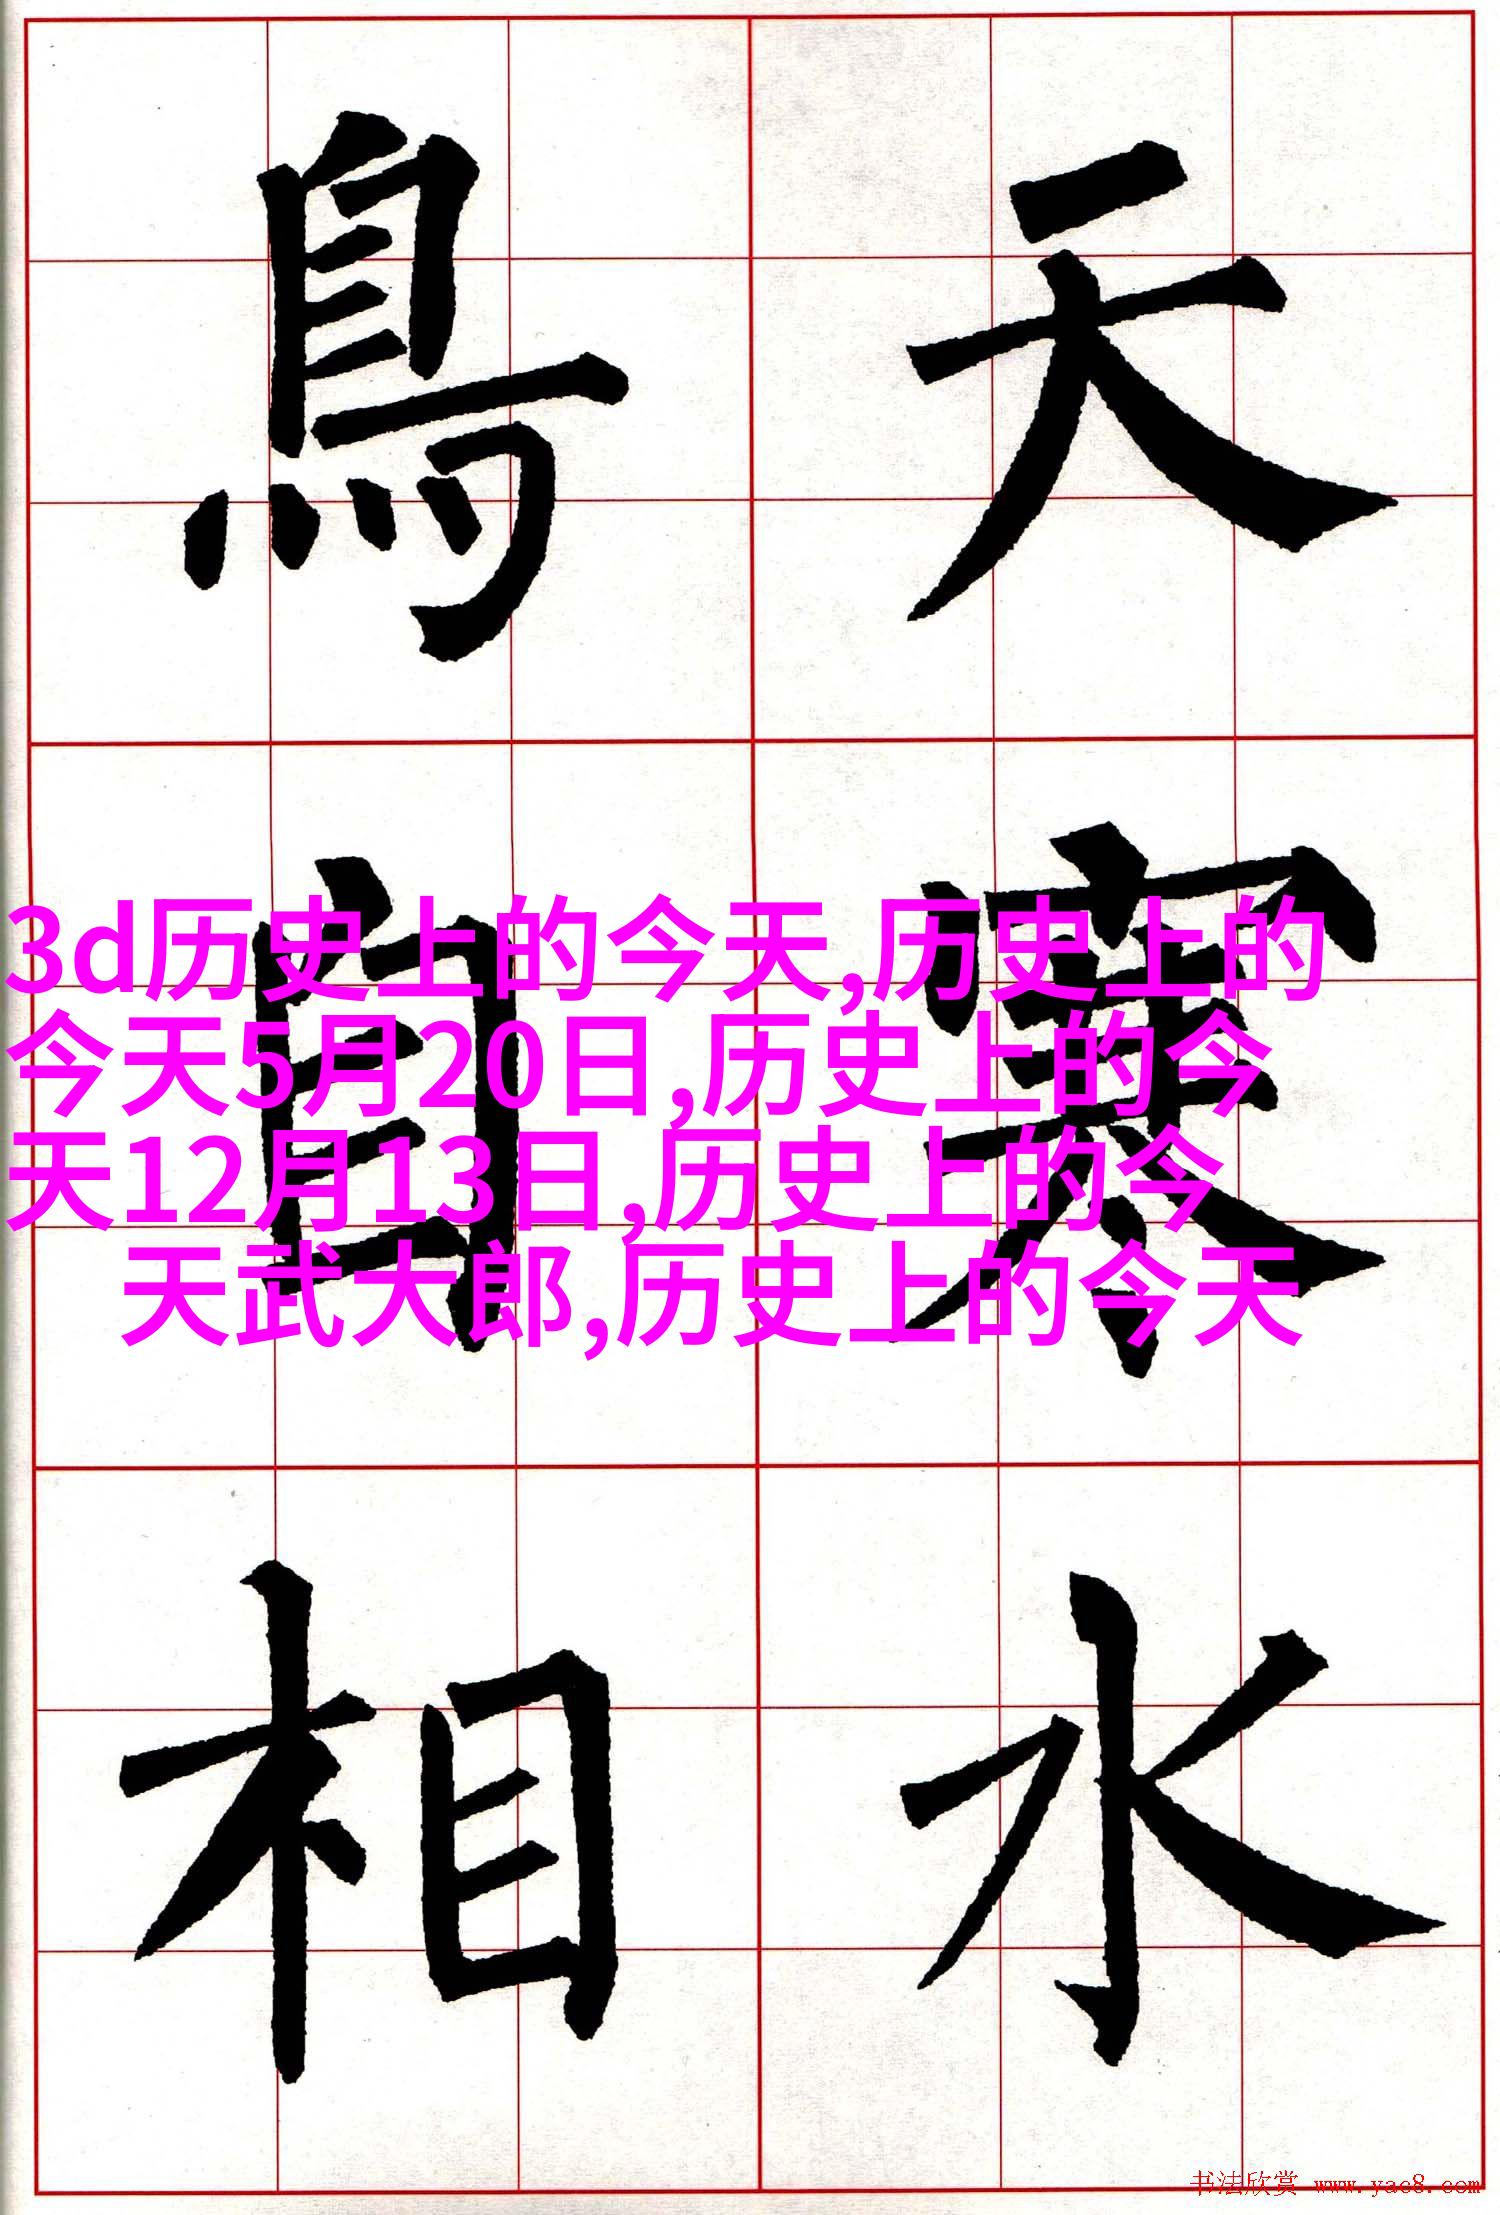 天
寒
水
鳥
自
相
3d历史上的今天,历史上的
今天5月20日,历史上的今
天12月13日,历史上的今
天武大郎,历史上的今天
书法欣赏 www.yac8.com